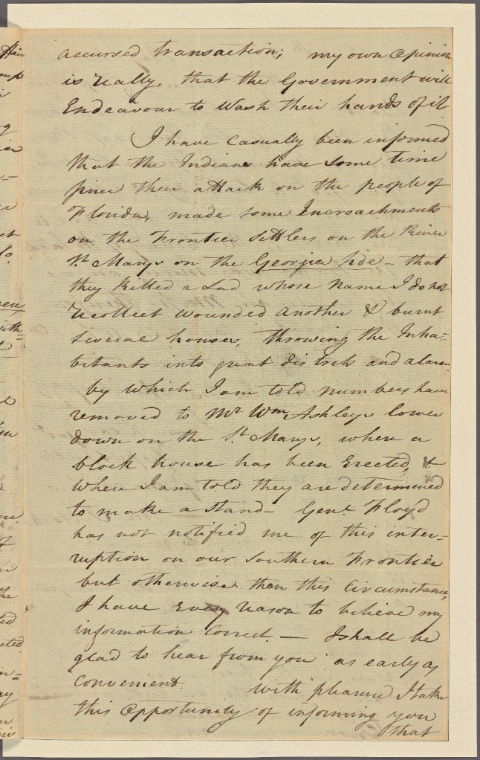 accursed transaction; my own Opinion
is really, that the Government will
Endeavour to Wash their hands of it
I have casually been informed
that the Indians have some time
since their attack on the people of
Florida, made some Incroachments
on the Frontier Settlers on the River
St. Marys on the Georgia side - that
they killed a Lad whose Name I do not
recollect wounded another & burnt
several houses, throwing the Inha-
bitants into great distress and alarm
by which I am told numbers have
removed to Mr. Wm. Ashleys lower
down on the St. Marys, where a
block house has been Erected, &
where I am told they are determined
to make a stand - Genl. Floyd
has not notified me of this inter-
ruption on our Southern Frontier
but otherwise than this Circumstance
I have Every reason to believe my
information Correct. - I shall be
glad to hear from you as early as
Convenient with pleasure I take
this Opportunity of informing you
that